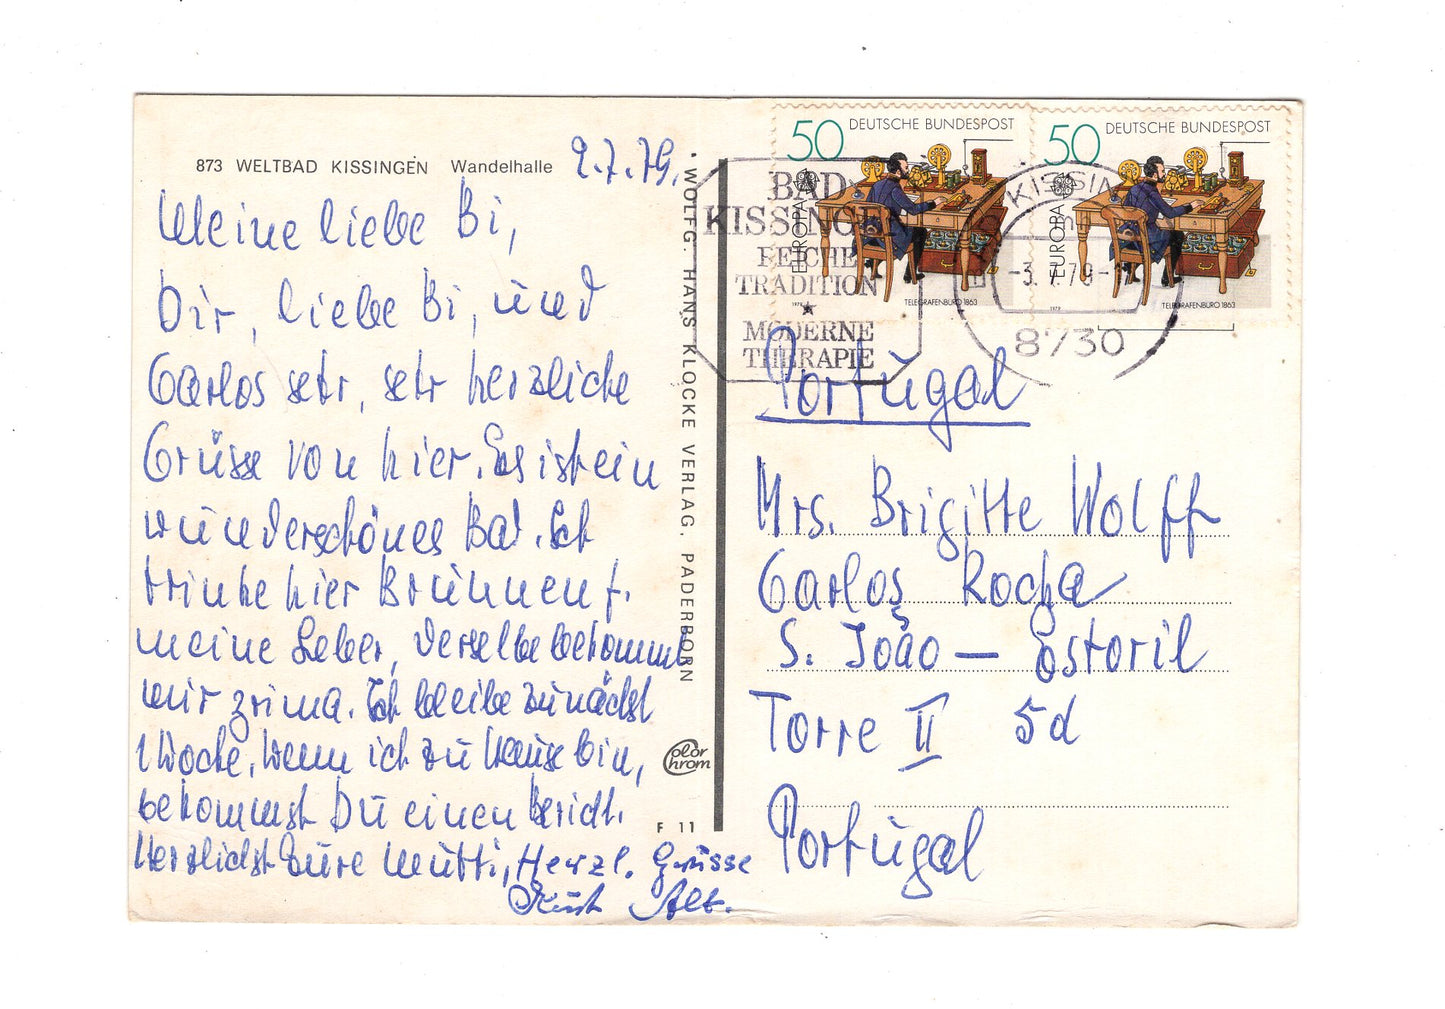 873 WELTBAD KISSINGEN Wandelhalle
2.7.79.
Meine liebe Bi,
Dir, liebe Bi, und
Carlos sehr, sehr herzliche
Grüsse von hier. Es ist ein
wunderschönes Bad. Ich
trinke hier Brunnen f.
meine Leber, derselbe bekommt
mir prima. Ich bleibe zunächst
1 Woche, wenn ich zu Hause bin,
bekommst Du einen Bericht.
Herzlichst Eure Mutti, Herzl. Grüsse
Kurt Alt.
WOLFG. HANS KLOCKE VERLAG, PADERBORN
Color Chrom
F 11
50 DEUTSCHE BUNDESPOST
EUROPA
TELEGRAFENBÜRO 1863
1979
50 DEUTSCHE BUNDESPOST
EUROPA
TELEGRAFENBÜRO 1863
1979
BAD
KISSINGEN
REICHE
TRADITION
MODERNE
THERAPIE
KISSIN
-3.7.79-17
8730
Portugal
Mrs. Brigitte Wolff
Carlos Rocha
S. João — Estoril
Torre II 5d
Portugal